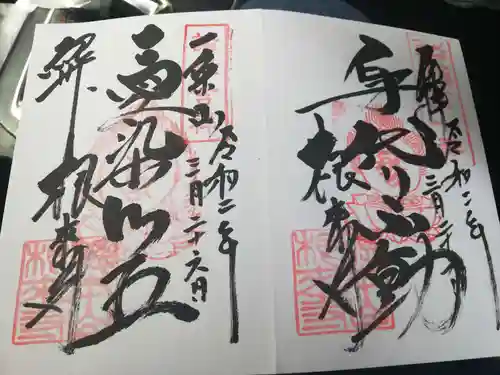 奉拝
令和二年
三月二十六日
身代り不動
根来寺
一乗山
令和二年
三月二十六日
愛染明王
奉拝
根来寺